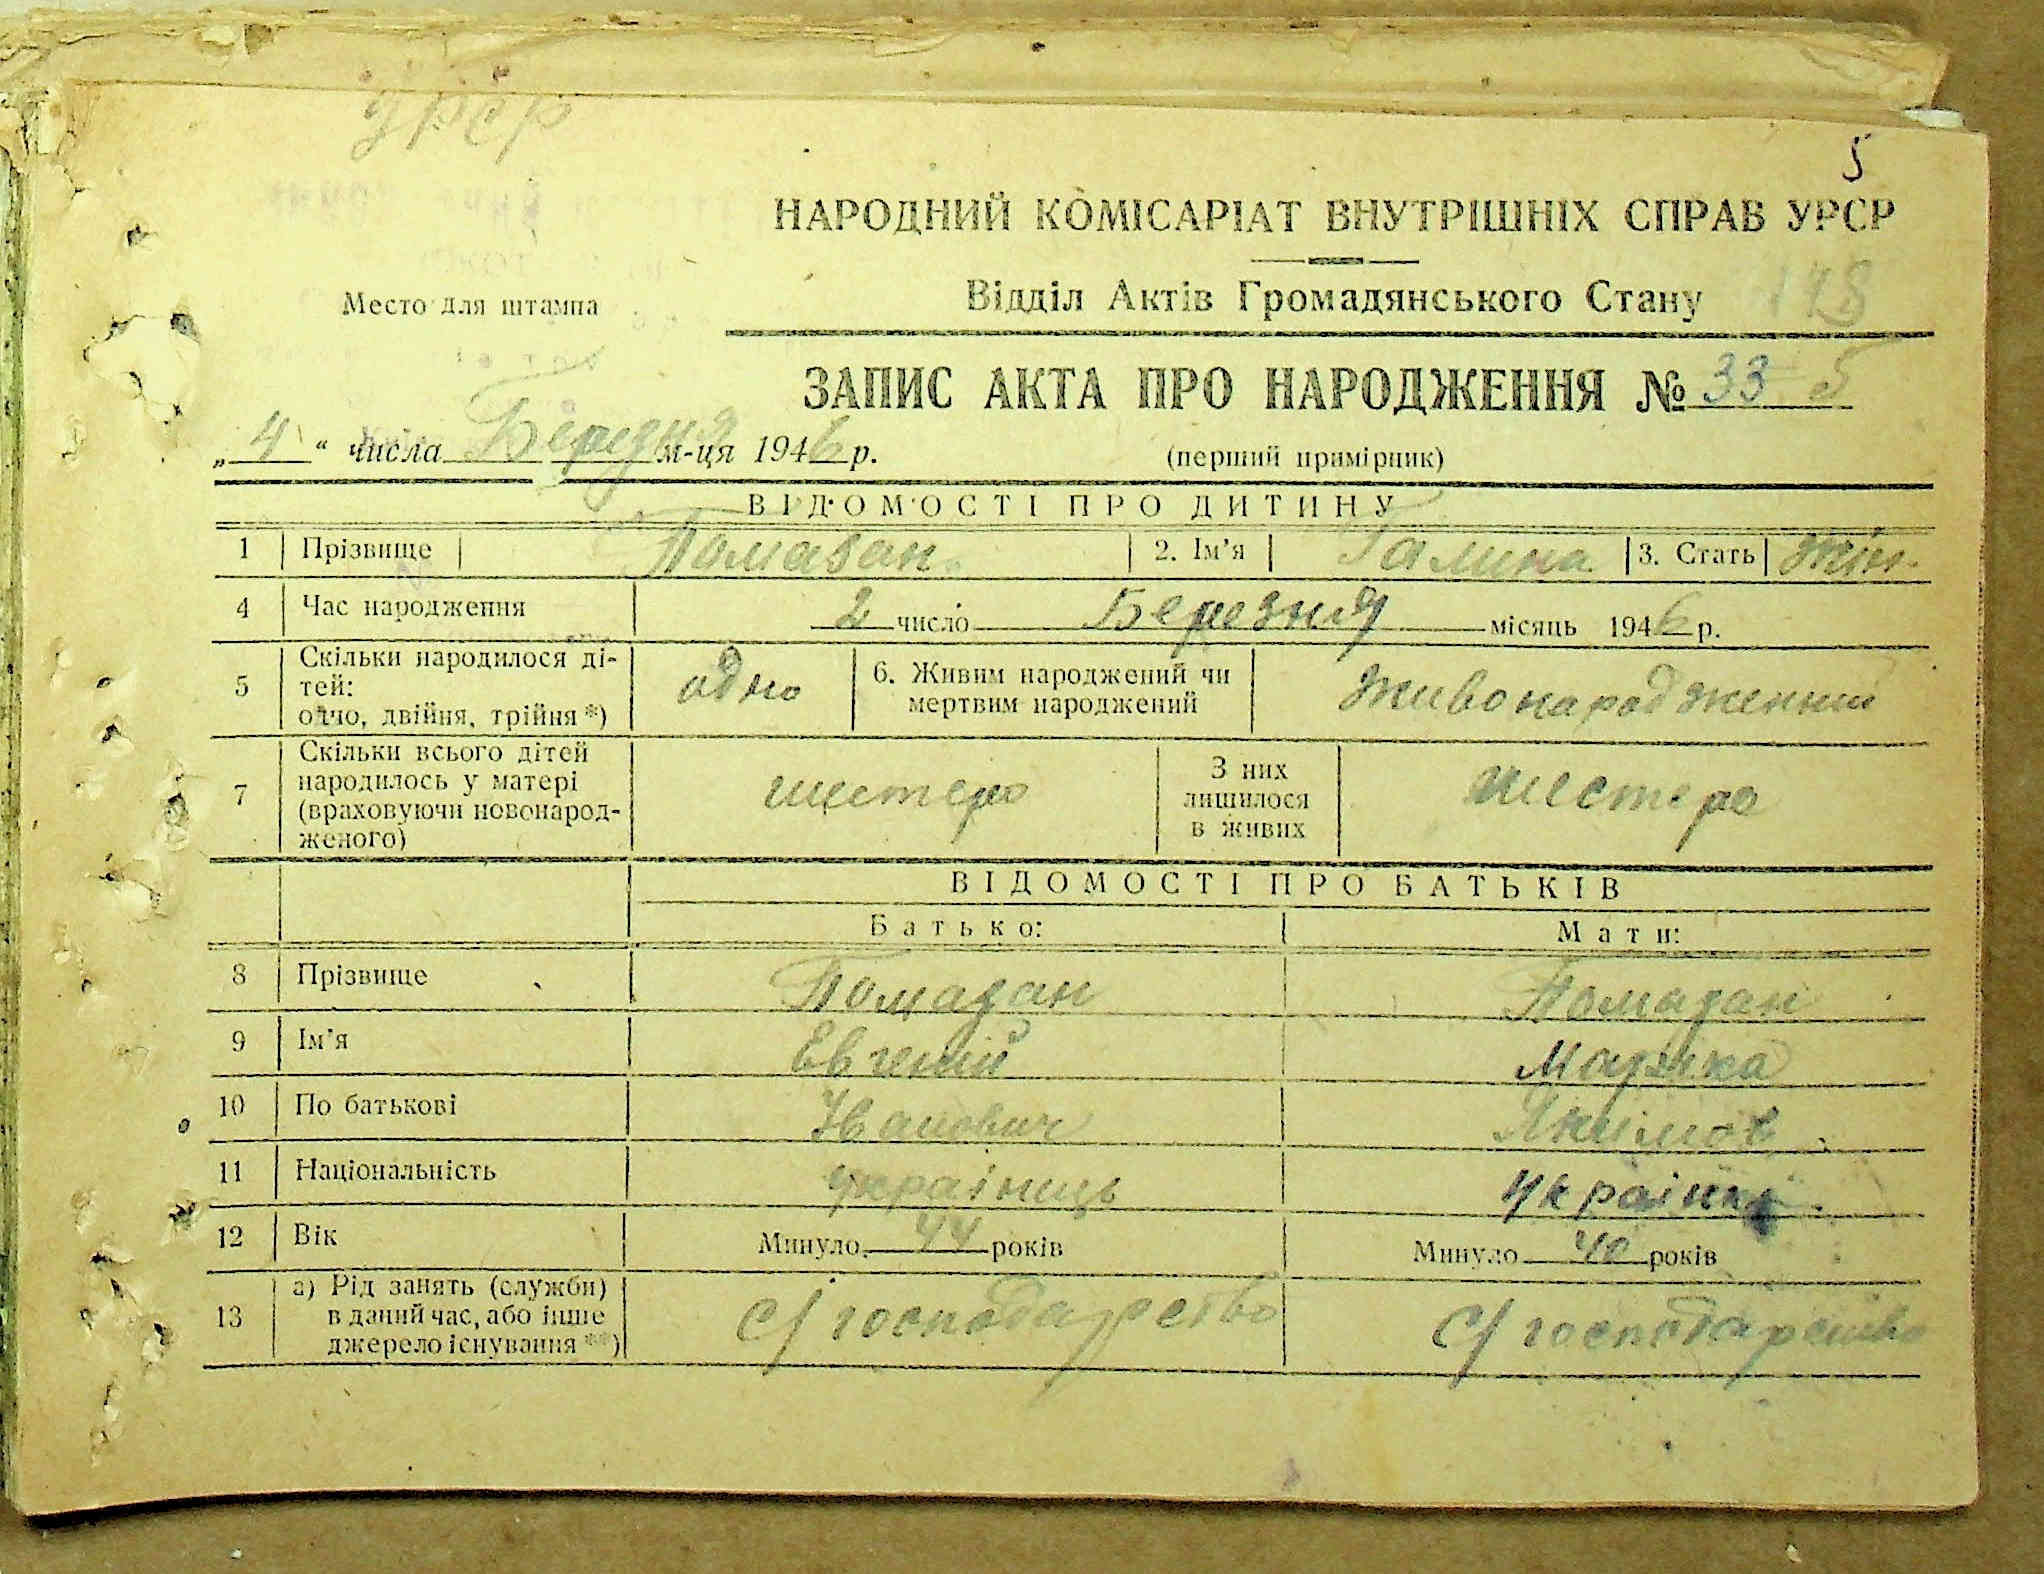 УРСР
5
НАРОДНИЙ КОМІСАРІАТ ВНУТРІШНІХ СПРАВ УРСР
Место для штампа
Відділ Актів Громадянського Стану
ЗАПИС АКТА ПРО НАРОДЖЕННЯ № 33 5
„4“ числа Березня м-ця 1946 р.
(перший примірник)
ВІДОМОСТІ ПРО ДИТИНУ
1 Прізвище Помазан. 2. Ім'я Галина 3. Стать жін.
4 Час народження 2 число Березня місяць 1946 р.
5 Скільки народилося ді-
тей:
одно, двійня, трійня *) одно 6. Живим народжений чи
мертвим народжений живонароджений
7 Скільки всього дітей
народилось у матері
(враховуючи новонарод-
женого) шестеро З них
лишилося
в живих шестеро
ВІДОМОСТІ ПРО БАТЬКІВ
Батько: Мати:
8 Прізвище Помазан Помазан
9 Ім'я Евгений Марика
10 По батькові Іванович
11 Національність українець українка
12 Вік Минуло 44 років Минуло 40 років
13 а) Рід занять (служби)
в даний час, або інше
джерело існування **) с/господарство с/господарство